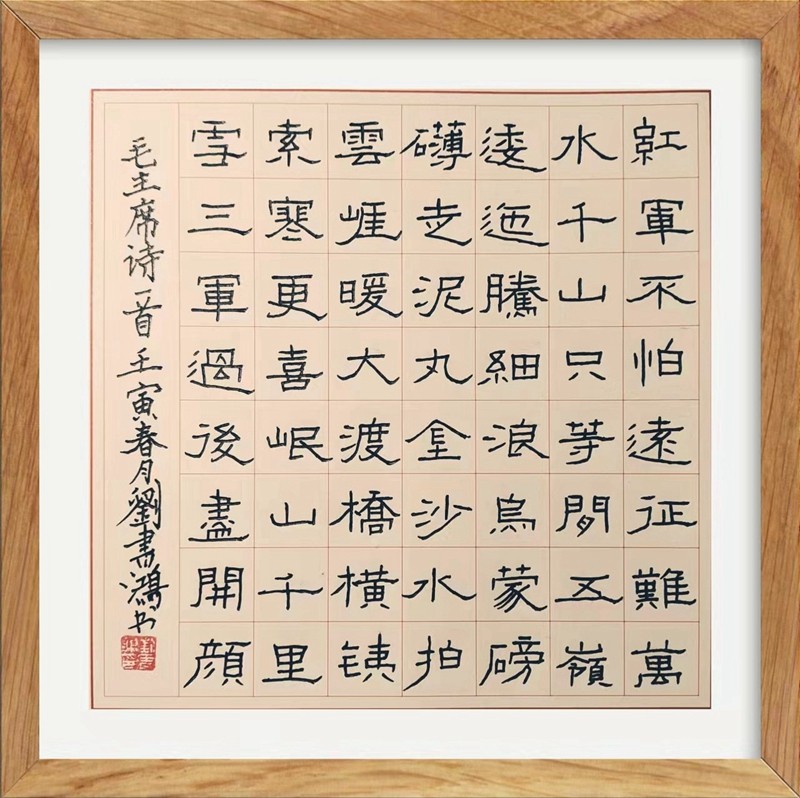 紅軍不怕遠征難萬
水千山只等閒五嶺
逶迤騰細浪烏蒙磅
礴走泥丸金沙水拍
雲崕暖大渡橋橫銕
索寒更喜岷山千里
雪三軍過後盡開顏
毛主席诗一首壬寅春月劉書鴻书